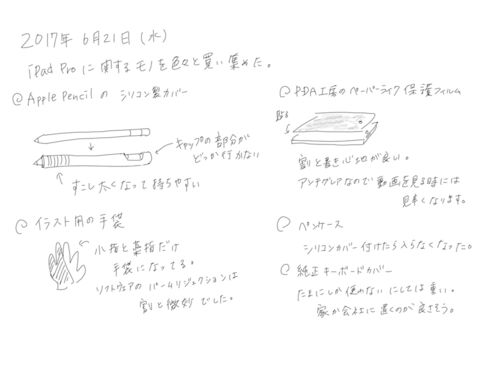 2017年 6月21日 (水)
iPad Proに関するモノを色々と買い集めた。
@ Apple Pencilの シリコン製カバー
キャップの部分が
どっか行かない
すこし太くなって持ちやすい
@ イラスト用の手袋
小指と薬指だけ
手袋になってる。
ソフトウェアの パームリジェクションは
割と微妙でした。
@ PDA工房のペーパーライク保護フィルム
割と書き心地が良い。
アンチグレアなので動画を見る時には
見辛くなります。
@ ペンケース
シリコンカバー付けたら入らなくなった。
@ 純正キーボードカバー
たまにしか使わないにしては重い。
家か会社に置くのが良さそう。